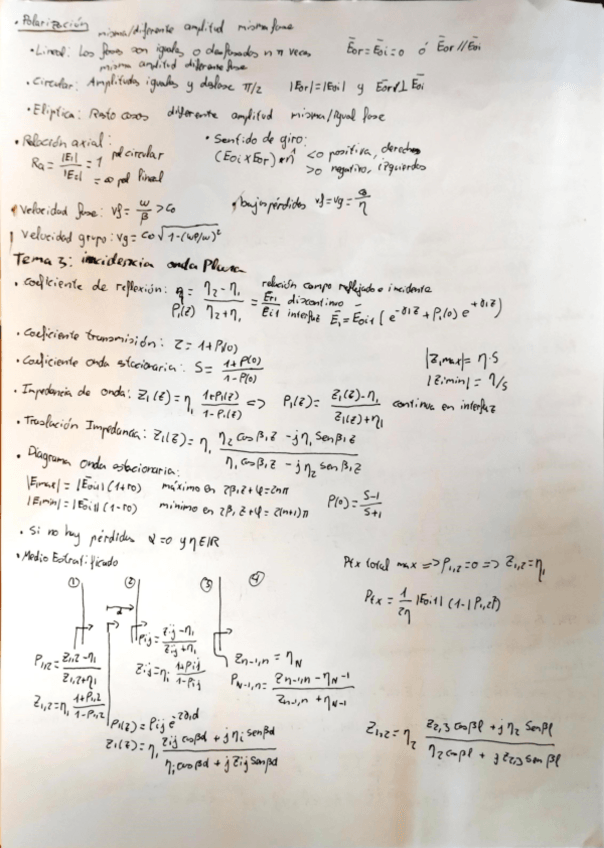 • Polarización misma/diferente amplitud misma fase
• Lineal: Los fases son iguales o desfasados n π veces Ēor = Ēoi = 0 ó Ēor // Ēoi
misma amplitud diferente fase
• Circular: Amplitudes iguales y desfase π/2 |Eor| = |Eoi| y Ēor ⊥ Ēoi
• Eliptica: Resto casos diferente amplitud misma/igual fase
• Relación axial: • Sentido de giro:
Ra = |E₁|/|E₂| = 1 pol circular (Eoi x Eor)·n̂ <0 positiva, derechas
= ∞ pol lineal >0 negativo, izquierdas
• Velocidad fase: vf = ω/β > c₀ • bajas pérdidas vf = vg =
• Velocidad grupo: vg = c₀ √(1-(ωp/ω)²)
Tema 3: incidencia onda Plana
• coeficiente de reflexión: ρ₁(z) = (η₂ - η₁)/(η₂ + η₁) = Er1/Ei1 relación campo reflejado e incidente
discontinuo interfaz Ē₁ = Ēoi1 (e^(-γ₁z) + ρ₁(0) e^(+γ₁z))
• coeficiente transmisión: τ = 1 + ρ(0)
• Coeficiente onda estacionaria: S = (1+ρ(0))/(1-ρ(0)) |Z₁max| = η·S
|Z₁min| = η/s
• Impedancia de onda: Z₁(z) = η₁ (1+ρ₁(z))/(1-ρ₁(z)) <=> ρ₁(z) = (Z₁(z)-η₁)/(Z₁(z)+η₁) continua en interfaz
• Traslación Impedancia: Z₁(z) = η₁ (η₂ cos β₁z - jη₁ sen β₁z)/(η₁ cos β₁z - jη₂ sen β₁z)
• Diagrama onda estacionaria:
|E₁max| = |Eoi1| (1+ρo) máximo en 2β₁z+φ = 2nπ ρ(0) = (S-1)/(S+1)
|E₁min| = |Eoi1| (1-ρo) mínimo en 2β₁z+φ = (2n+1)π
• si no hay pérdidas α = 0 y η∈ℝ
• Medio Estratificado Ptx total max => ρ₁,₂ = 0 => Z₁,₂ = η₁
① ② ③ ④
Ptx = 1/2η |Eoi1| (1-|ρ₁,₂|²)
d
ρij = (Zij - ηi)/(Zij + ηi)
ρ₁,₂ = (Z₁,₂ - η₁)/(Z₁,₂ + η₁) Zij = ηi (1+ρij)/(1-ρij) Zn-1,n = ηN
Z₁,₂ = η₁ (1+ρ₁,₂)/(1-ρ₁,₂) ρN-1,n = (Zn-1,n - ηN-1)/(Zn-1,n + ηN-1)
ρi(z) = ρij e^(-2γid)
Zi(z) = ηi (Zij cos βd + jηi sen βd)/(ηi cos βd + jZij sen βd) Z₁,₂ = η₂ (Z₂,₃ cos βl + jη₂ Sen βl)/(η₂ cos βl + jZ₂,₃ sen βl)